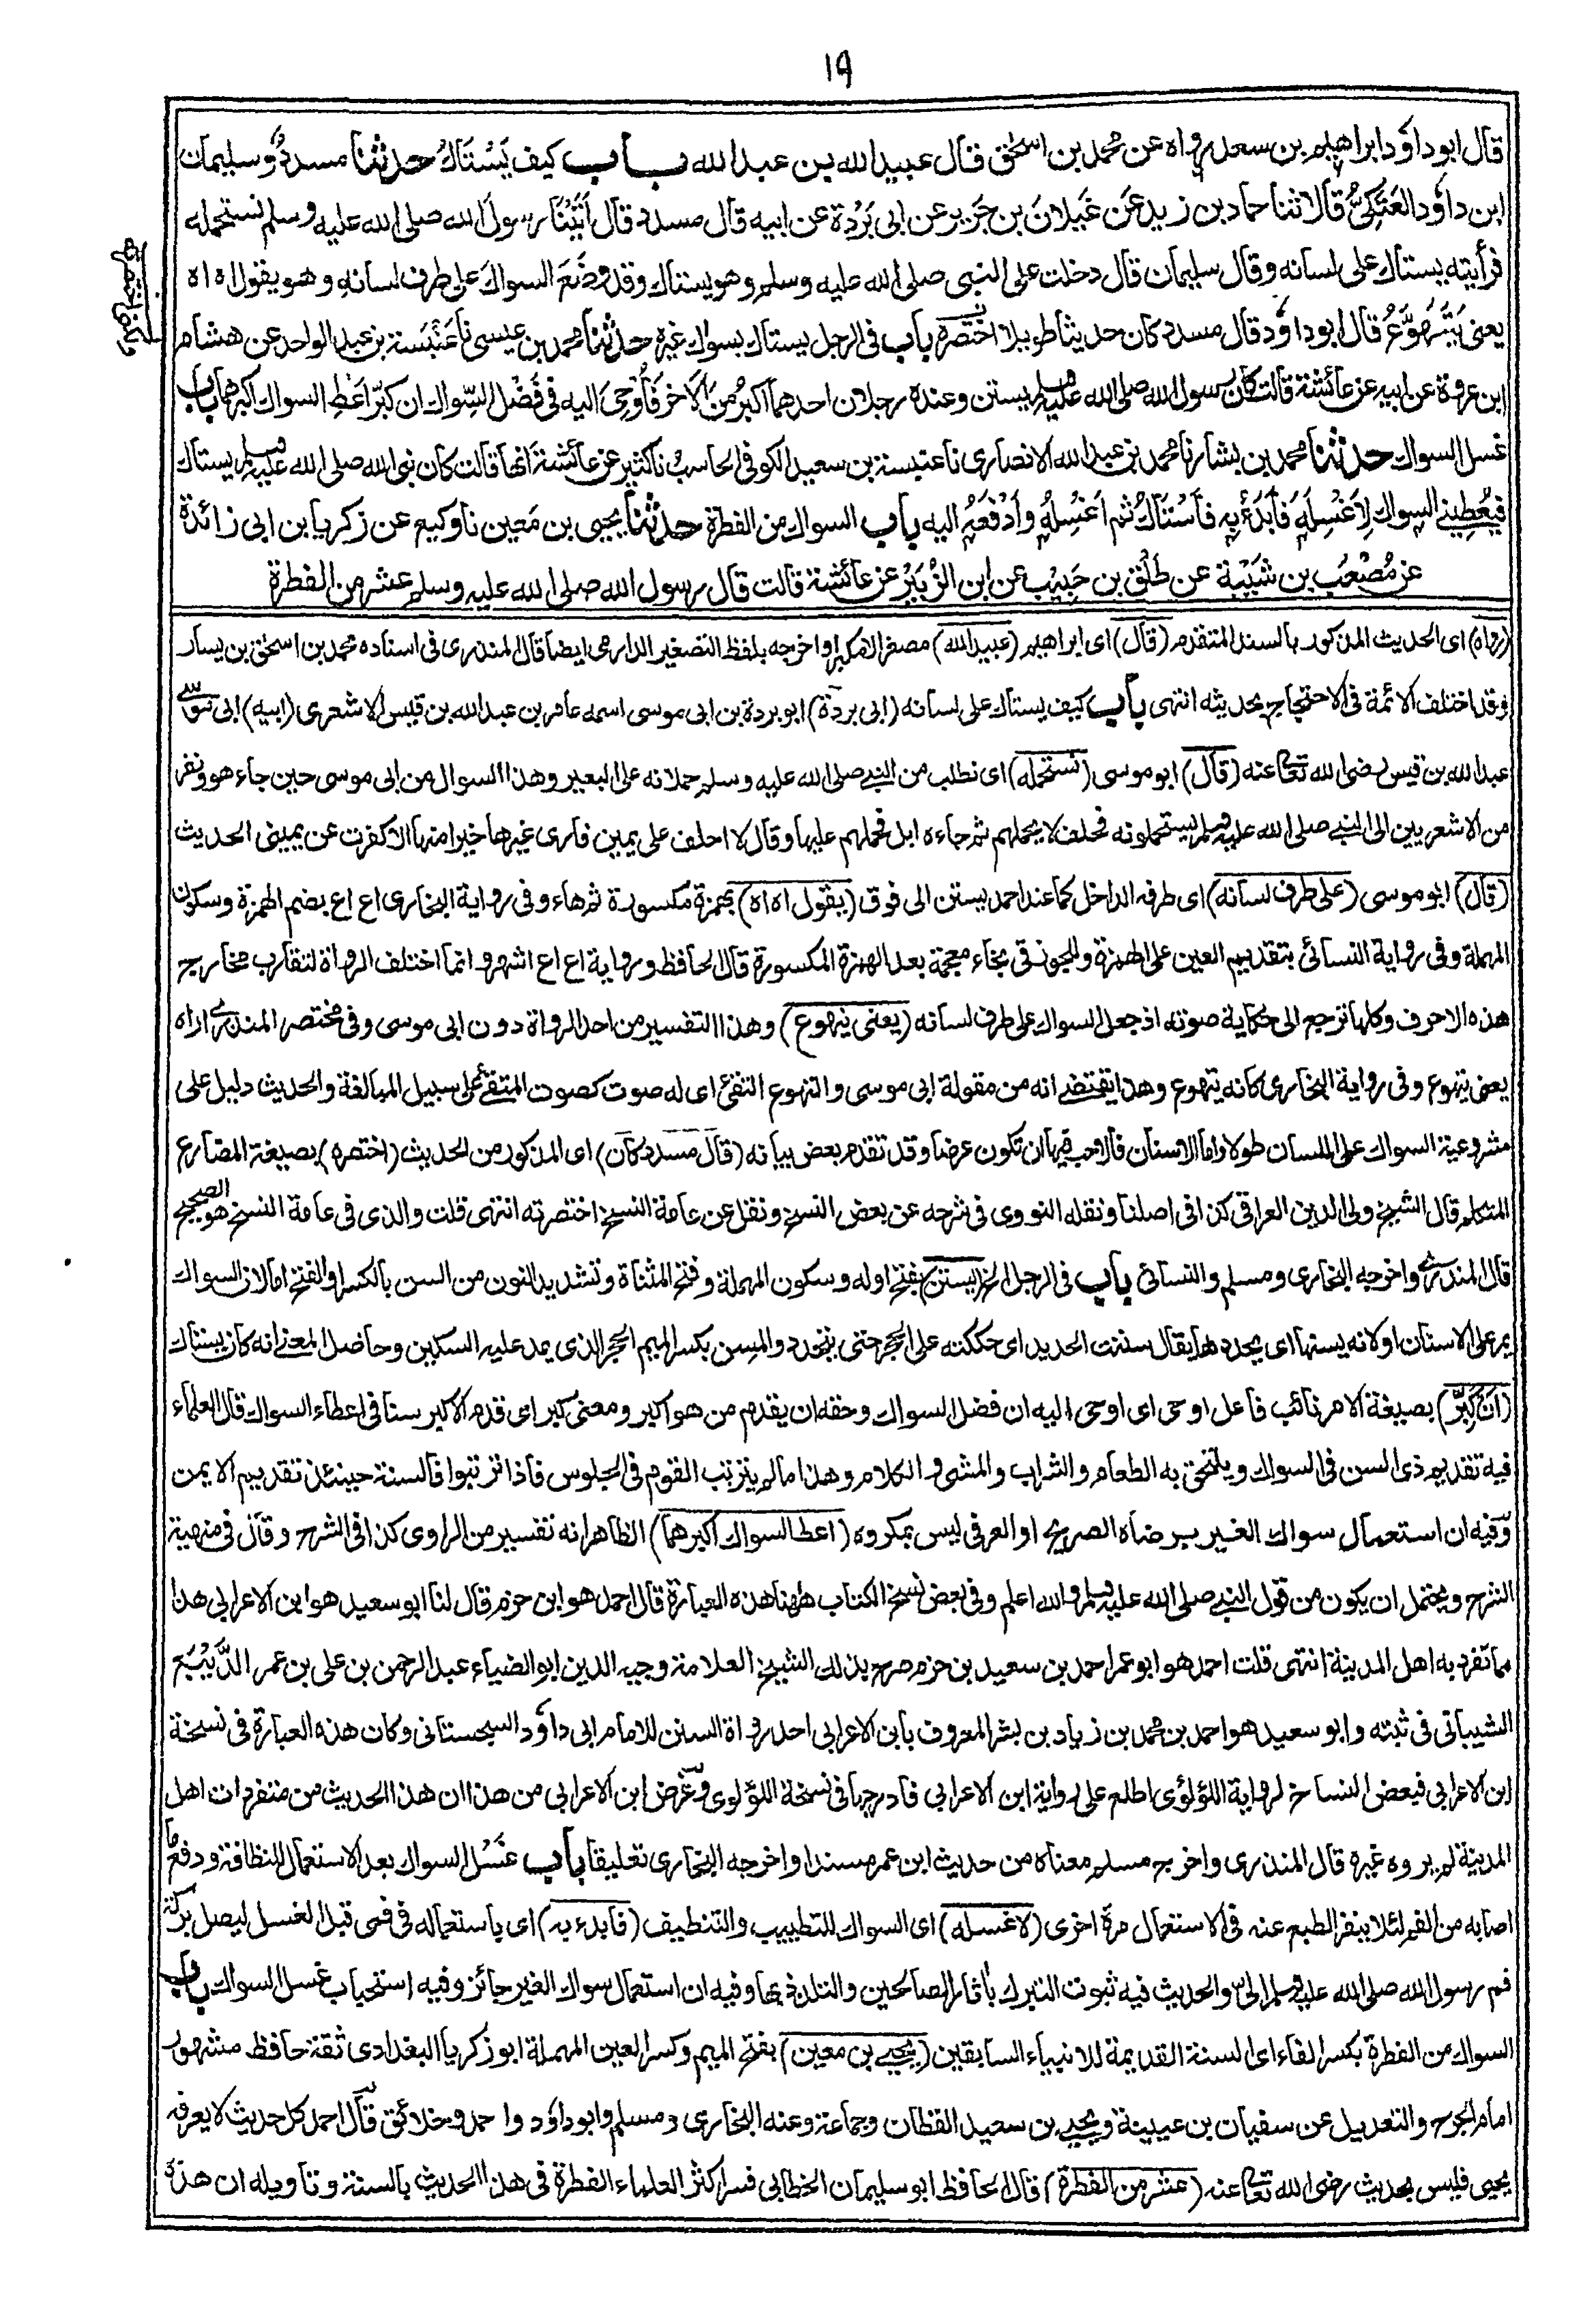 19
قال ابو داؤد ابراهيم بن سعد رواه عن محمد بن اسحٰق قال عبيد الله بن عبد الله باب كيف يَسْتَاكُ حدثنا مسددٌ وسليمان
ابن داؤد العَتَكِيُّ قالا ثنا حماد بن زيد عَن غَيلانَ بن جَرِير عن ابى بُرْدَة عن ابيه قال مسدد قال اَتَيْنَا رسول الله صلى الله عليه وسلم نستحمله
فرأيته يستاك على لسانه وقال سليمان قال دخلت على النبى صلى الله عليه وسلم وهو يستاك وقد وَضَعَ السواكَ على طرف لسانهِ وهو يقول اه اه
يعنى يَتَهَوَّعُ قال ابو داؤد قال مسدد كان حديثا طويلا اختصره باب فى الرجل يستاك بسواك غيره حدثنا محمد بن عيسى نا عَنْبَسَة بن عبد الواحد عن هشام
ابن عروة عن ابيه عن عائشة قالت كان رسول الله صلى الله عليه وسلم يستن وعنده رجلان احدهما اكبرُ مِنَ الاخر فَاُوْحِىَ اليه فى فَضْل السِّواك ان كَبِّر اَعْطِ السواك اكبرهما باب
غسل السواك حدثنا محمد بن بشار نا محمد بن عبد الله الانصارى نا عنبسة بن سعيد الكوفى الحاسبُ نا كثير عن عائشة انها قالت كان نبى الله صلى الله عليه وسلم يستاك
فيُعْطِينى السواك لِاَغْسِلَهُ فَاَبْدَءُ بِه فَاَسْتَاكُ ثم اَغْسِلُهُ واَدْفَعُهُ اليه باب السواك من الفطرة حدثنا يحيى بن مَعِين نا وكيع عن زكريا بن ابى زائدة
عن مُصْعَب بن شَيْبَة عن طَلْق بن حَبِيْب عن ابن الزُّبَيْر عن عائشة قالت قال رسول الله صلى الله عليه وسلم عشر من الفطرة
(رواه) اى الحديث المذكور بالسند المتقدم (قال) اى ابراهيم (عبيد الله) مصغرا لا مكبرا واخرجه بلفظ التصغير الدارمى ايضا قال المنذرى فى اسناده محمد بن اسحٰق بن يسار
وقد اختلف الائمة فى الاحتجاج بحديثه انتهى باب كيف يستاك على لسانه (ابى بردة) ابو بردة بن ابى موسى اسمه عامر بن عبد الله بن قيس الاشعرى (ابيه) ابى موسى
عبد الله بن قيس رضى الله تعالى عنه (قال) ابو موسى (نستحمله) اى نطلب من النبى صلى الله عليه وسلم حملانه على البعير وهذا السوال من ابى موسى حين جاء هو ونفر
من الاشعريين الى النبى صلى الله عليه وسلم يستحملونه فحلف لا يحملهم ثم جاءه ابل فحملهم عليها وقال لا احلف على يمين فارى غيرها خيرا منها الا كفرت عن يمينى الحديث
(قال) ابو موسى (على طرف لسانه) اى طرفه الداخل كما عند احمد يستن الى فوق (يقول اه اه) بهمزة مكسورة ثم هاء وفى رواية البخارى اع اع بضم الهمزة وسكون
المهملة وفى رواية النسائى بتقديم العين على الهمزة وللجوزقى بخاء معجمة بعد الهمزة المكسورة قال الحافظ ورواية اع اع اشهر وانما اختلف الرواة لتقارب مخارج
هذه الاحرف وكلها ترجع الى حكاية صوته اذ جعل السواك على طرف لسانه (يعنى يتهوع) وهذا التفسير من احد الرواة دون ابى موسى وفى مختصر المنذرى اراه
يعنى يتهوع وفى رواية البخارى كانه يتهوع وهذا يقتضى انه من مقولة ابى موسى والتهوع التقئ اى له صوت كصوت المتقئ على سبيل المبالغة والحديث دليل على
مشروعية السواك على اللسان طولا واما الاسنان فالاحب فيها ان تكون عرضا وقد تقدم بعض بيانه (قال مسدد كان) اى المذكور من الحديث (اختصره) بصيغة المضارع
المتكلم قال الشيخ ولى الدين العراقى كذا فى اصلنا ونقله النووى فى شرحه عن بعض النسخ ونقل عن عامة النسخ اختصرته انتهى قلت والذى فى عامة النسخ هو الصحيح
قال المنذرى واخرجه البخارى ومسلم والنسائى باب فى الرجل الخ (يستن) بفتح اوله وسكون المهملة وفتح المثناة وتشديد النون من السن بالكسر او الفتح اما لان السواك
يمر على الاسنان او لانه يسنها اى يحددها يقال سننت الحديد اى حككته على الحجر حتى يتحدد والمسن بكسر الميم الحجر الذى يمد عليه السكين وحاصل المعنى انه كان يستاك
(ان كَبِّرْ) بصيغة الامر نائب فاعل اوحى اى اوحى اليه ان فضل السواك وحقه ان يقدم من هو اكبر ومعنى كبر اى قدم الاكبر سنا فى اعطاء السواك قال العلماء
فيه تقديم ذى السن فى السواك ويلتحق به الطعام والشراب والمشى والكلام وهذا ما لم يترتب القوم فى الجلوس فاذا ترتبوا فالسنة حينئذ تقديم الايمن
وفيه ان استعمال سواك الغير برضاه الصريح او العرفى ليس بمكروه (اعط السواك اكبرهما) الظاهر انه تفسير من الراوى كذا فى الشرح وقال فى منهية
الشرح ويحتمل ان يكون من قول النبى صلى الله عليه وسلم والله اعلم وفى بعض نسخ الكتاب ههنا هذه العبارة قال احمد هو ابن حزم قال لنا ابو سعيد هو ابن الاعرابى هذا
مما تفرد به اهل المدينة انتهى قلت احمد هو ابو عمر احمد بن سعيد بن حزم صرح بذلك الشيخ العلامة وجيه الدين ابو الضياء عبد الرحمن بن على بن عمر الدَّيْبَع
الشيبانى فى ثبته وابو سعيد هو احمد بن محمد بن زياد بن بشر المعروف بابن الاعرابى احد رواة السنن للامام ابى داؤد السجستانى وكان هذه العبارة فى نسخة
ابن الاعرابى فبعض النساخ لرواية اللؤلؤى اطلع على رواية ابن الاعرابى فادرجها فى نسخة اللؤلوى وغرض ابن الاعرابى من هذا ان هذا الحديث من متفردات اهل
المدينة لم يروه غيره قال المنذرى واخرج مسلم معناه من حديث ابن عمر مسندا واخرجه البخارى تعليقا باب غَسْل السواك بعد الاستعمال للنظافة ودفع ما
اصابه من الفم لئلا ينفر الطبع عنه فى الاستعمال مرة اخرى (لاغسله) اى السواك للتطييب والتنظيف (فابدء به) اى باستعماله فى فمى قبل الغسل ليصل بركة
فم رسول الله صلى الله عليه وسلم الىّ والحديث فيه ثبوت التبرك باٰثار الصالحين والتلذذ بها وفيه ان استعمال سواك الغير جائز وفيه استحباب غسل السواك باب
السواك من الفطرة بكسر الفاء اى السنة القديمة للانبياء السابقين (يحيى بن معين) بفتح الميم وكسر العين المهملة ابو زكريا البغدادى ثقة حافظ مشهور
امام الجرح والتعديل عن سفيان بن عيينة ويحيى بن سعيد القطان وجماعة وعنه البخارى ومسلم وابو داؤد واحمد وخلائق قال احمد كل حديث لا يعرفه
يحيى فليس بحديث رضى الله تعالى عنه (عشر من الفطرة) قال الحافظ ابو سليمان الخطابى فسر اكثر العلماء الفطرة فى هذا الحديث بالسنة وتاويله ان هذه